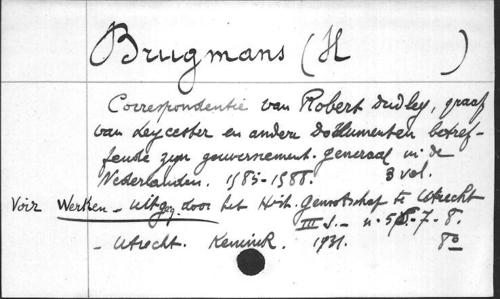 Brugmans (H )
Correspondentie van Robert Dudley, graaf
van Leycester en andere documenten betref-
fende zijn gouvernement-generaal in de
Nederlanden. 1585-1588. 3 vol.
Voir Werken - uitg. door het Hist. Genootschap te Utrecht
III S. - n. 56-7-8.
- Utrecht. Kemink. 1931. 8º